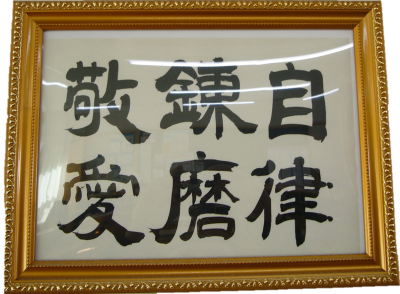 自律
錬磨
敬愛